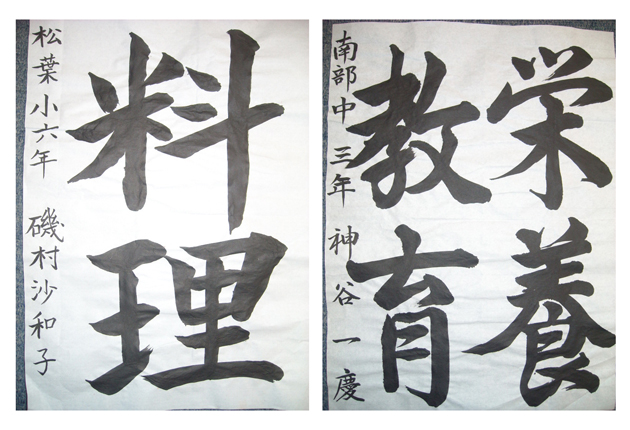 料理
松葉小六年 磯村沙和子
栄養
教育
南部中 三年 神谷一慶